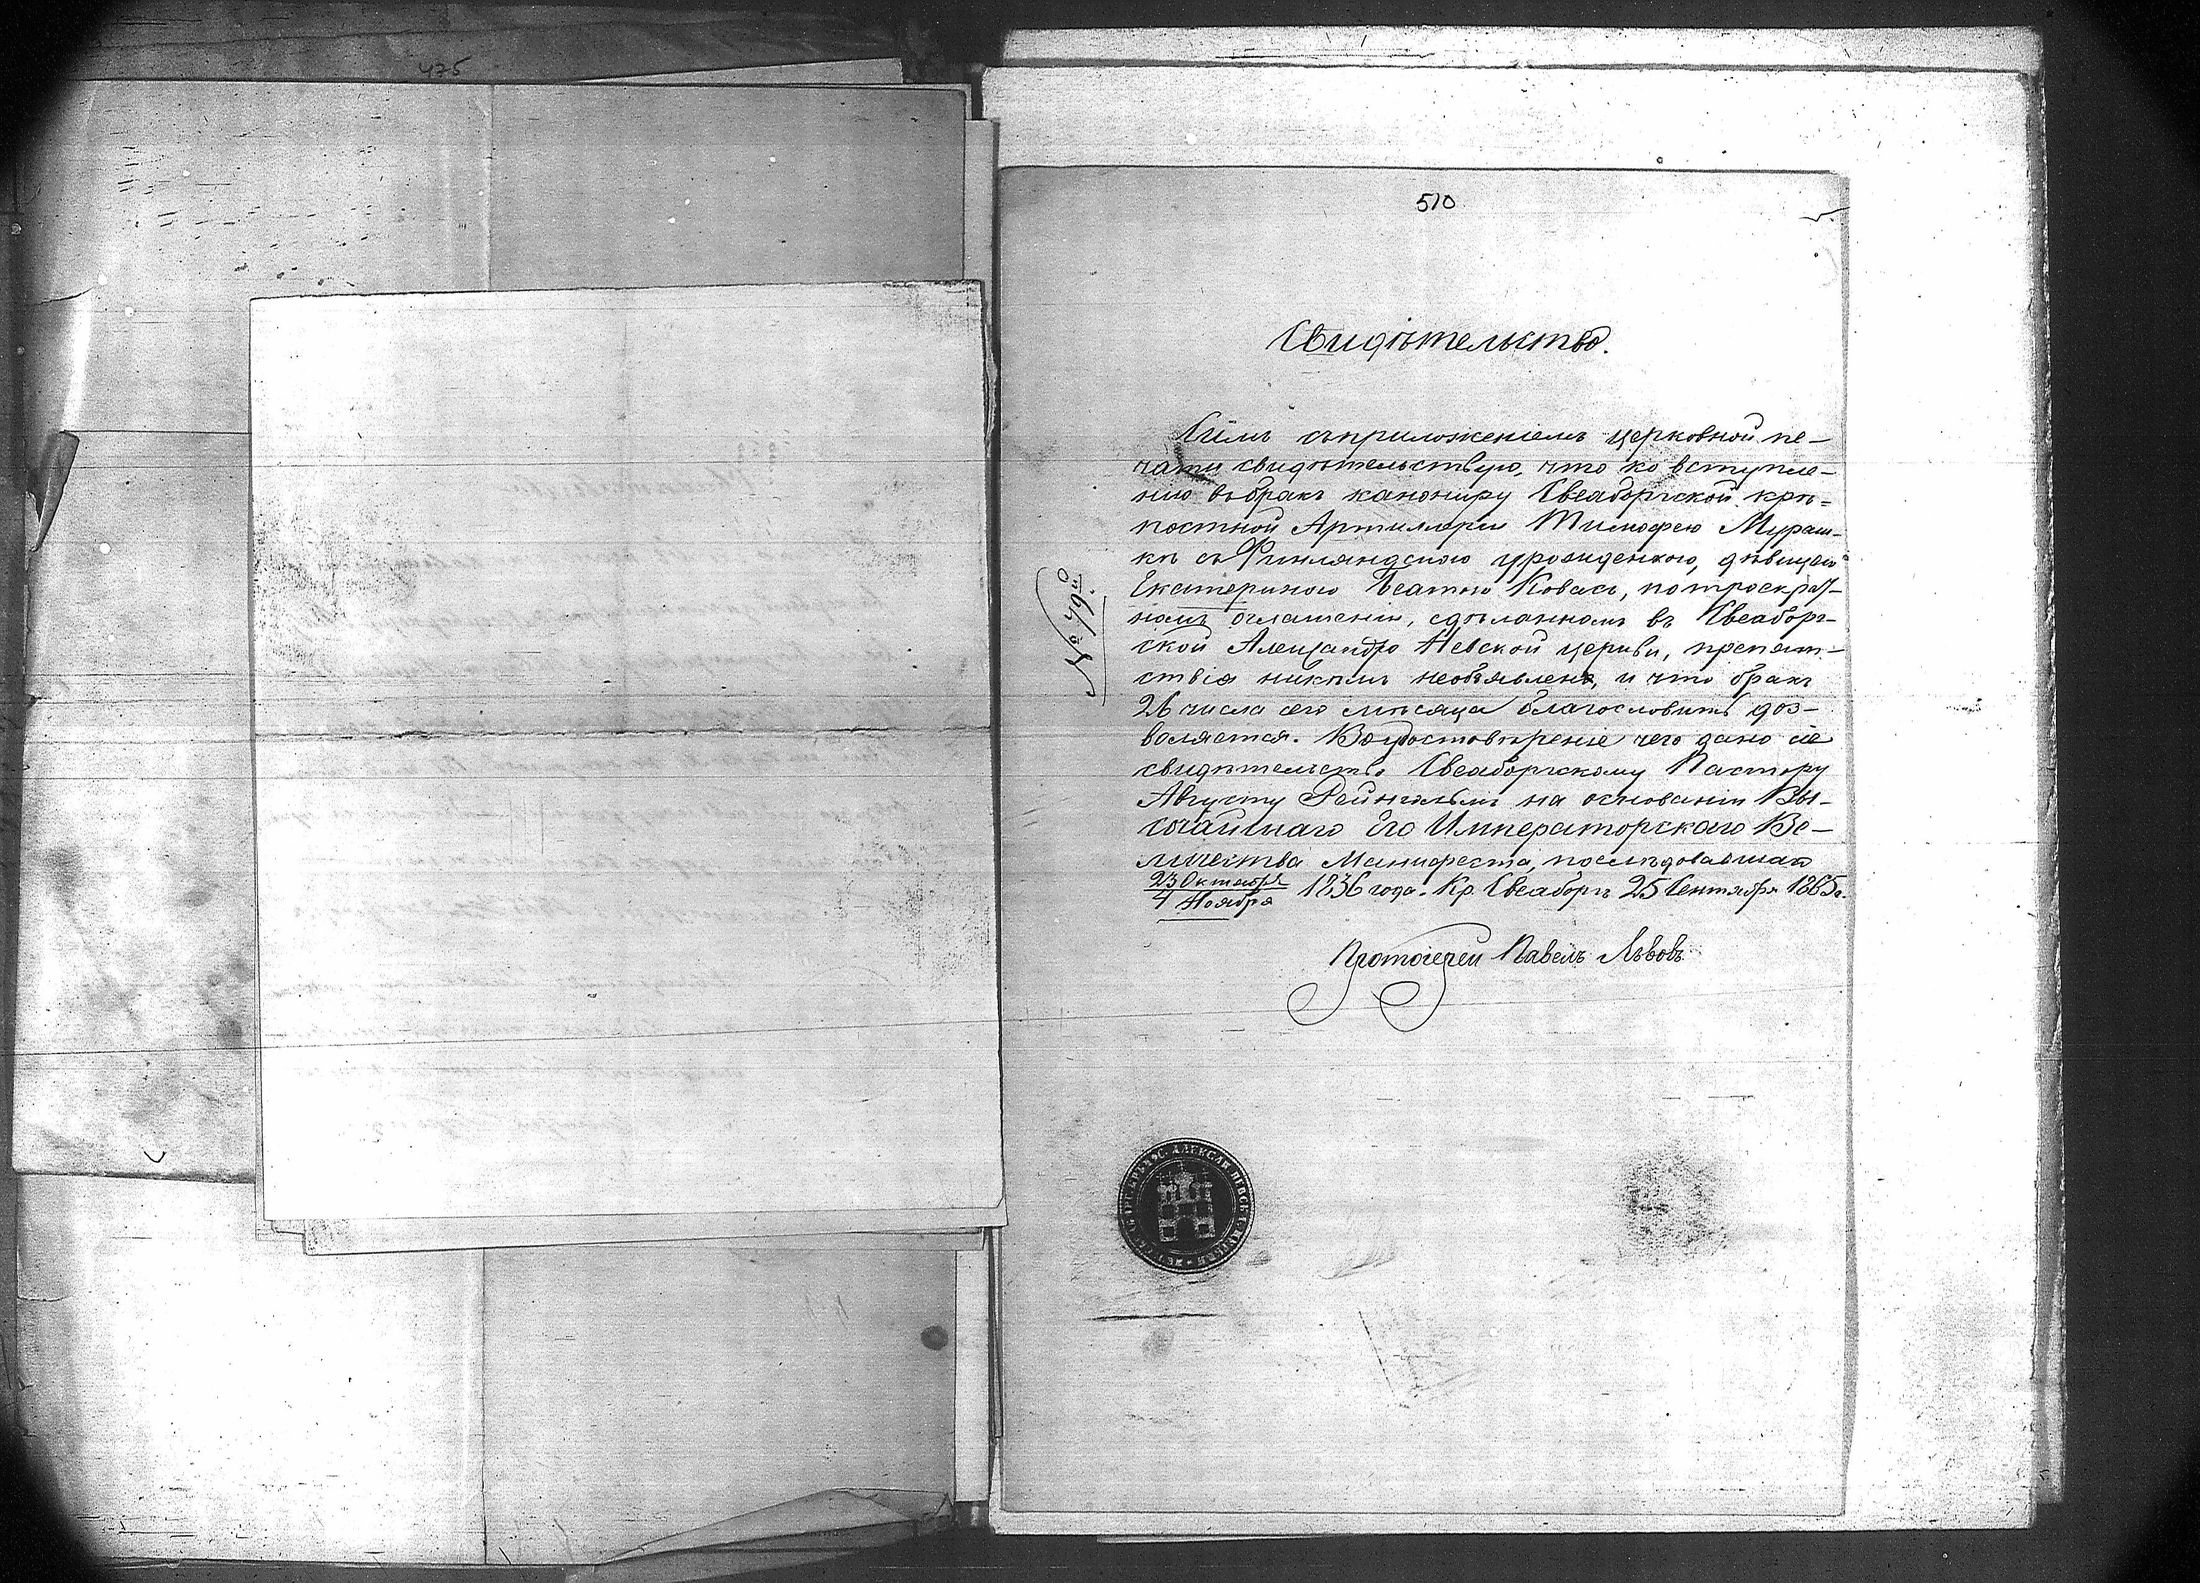 475
510
Свидѣтельство.
Симъ съ приложеніемъ церковной пе-
чати свидѣтельствую, что ко вступле-
нію въ бракъ канониру Свеаборгской крѣ-
постной Артиллеріи Тимофею Мураш-
кѣ съ Финляндскою уроженкою, дѣвицею
Екатериною Беатою Ковасъ, по троекрат-
номъ оглашеніи, сдѣланномъ въ Свеаборг-
ской Александро Невской церкви, препят-
ствія никѣмъ необъявлено, и что бракъ
26 числа сего мѣсяца благословить доз-
воляется. Въ удостовѣреніе чего дано сіе
свидѣтельство Свеаборгскому Пастору
Августу на основаніи Вы-
сочайшаго Его Императорскаго Ве-
личества Манифеста, послѣдовавшаго
23 Октября
4 Ноября
1836 года. Кр. Свеаборгъ 25 Сентября 1865 г.
№ 79й
Протоіерей Павелъ Львовъ